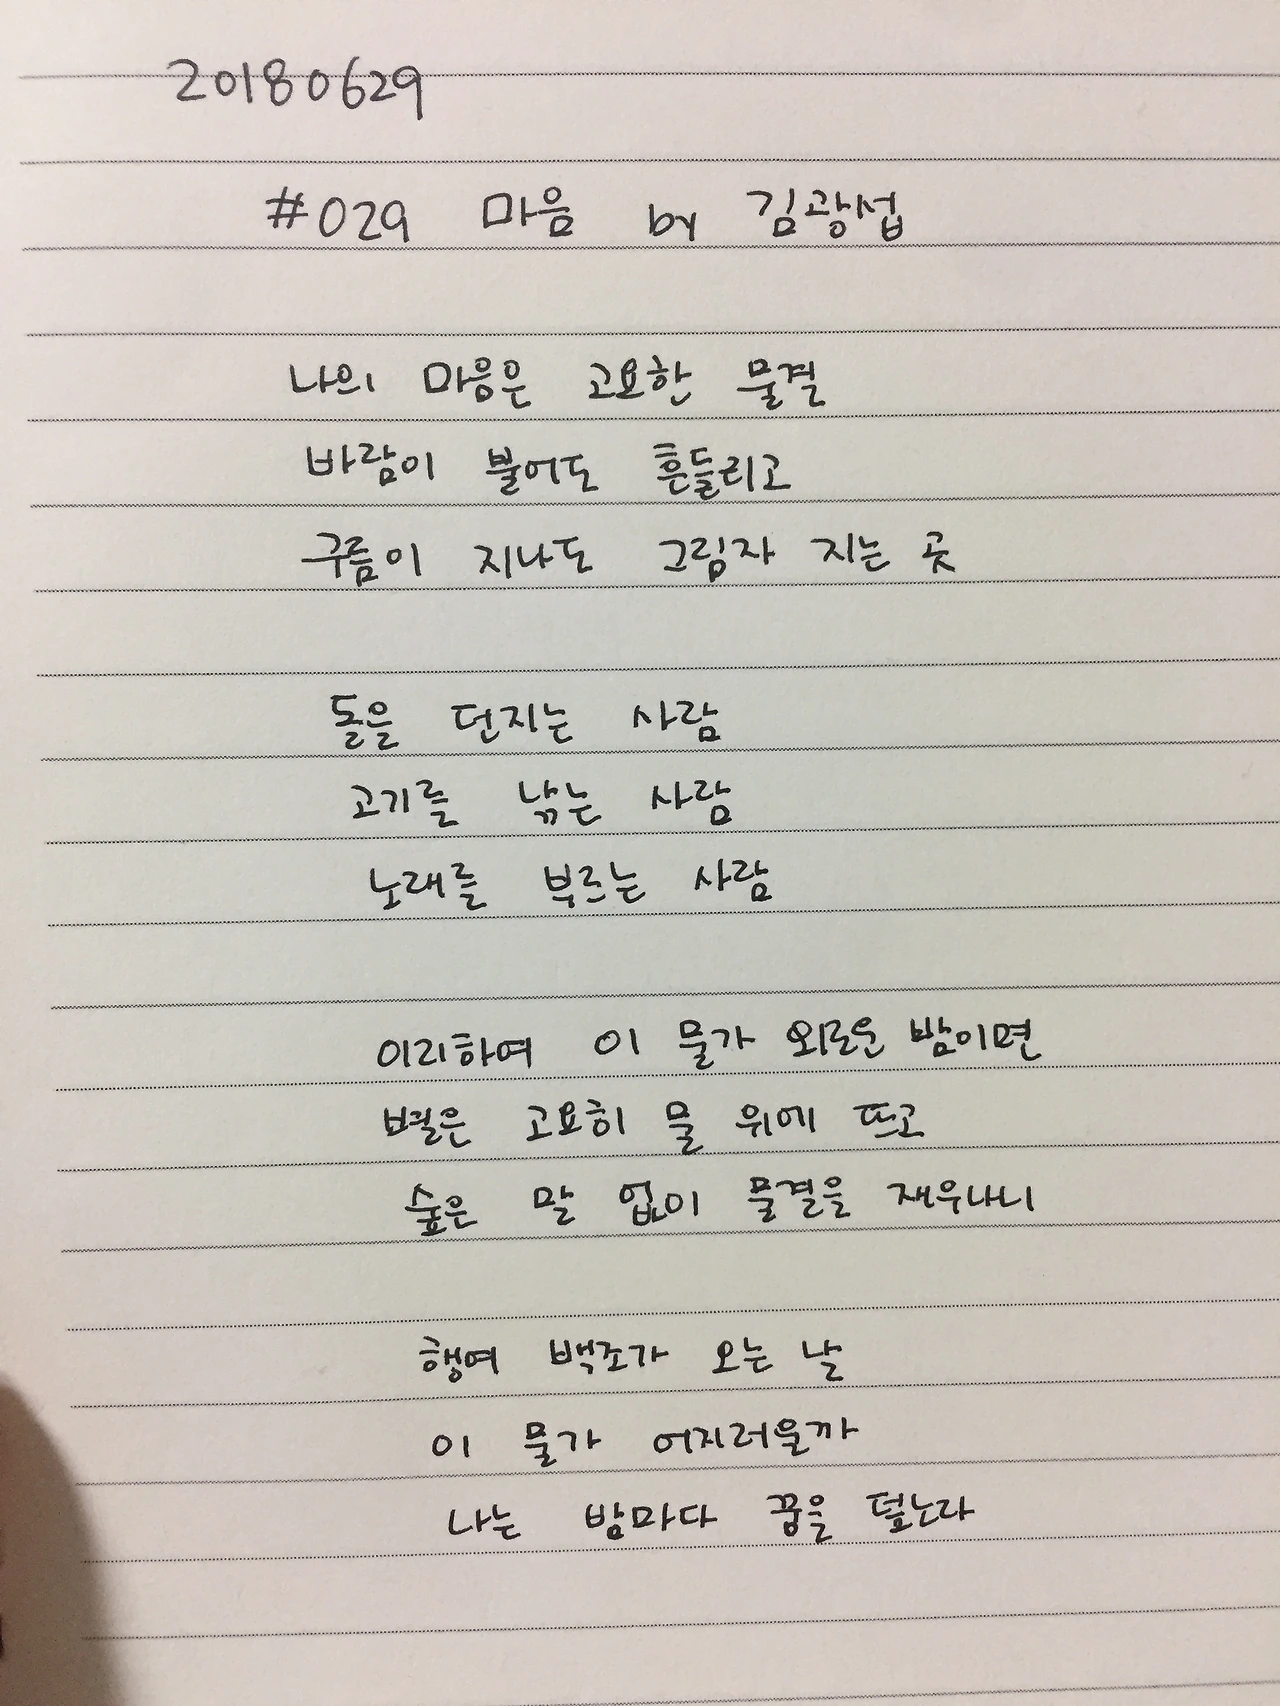 20180629
#029 마음 by 김광섭
나의 마음은 고요한 물결
바람이 불어도 흔들리고
구름이 지나도 그림자 지는 곳
돌을 던지는 사람
고기를 낚는 사람
노래를 부르는 사람
이리하여 이 물가 외로운 밤이면
별은 고요히 물 위에 뜨고
숲은 말 없이 물결을 재우나니
행여 백조가 오는 날
이 물가 어지러울까
나는 밤마다 꿈을 덮노라